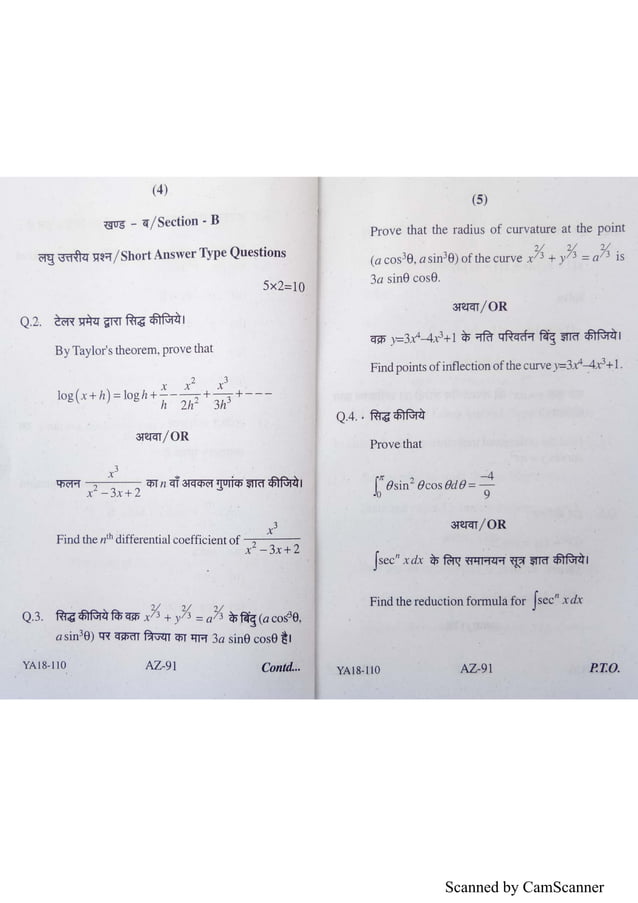 (4)
खण्ड - ब/Section - B
लघु उत्तरीय प्रश्न/Short Answer Type Questions
5×2=10
Q.2. टेलर प्रमेय द्वारा सिद्ध कीजिये।
By Taylor's theorem, prove that
log(x+h) = log h + x/h − x²/2h² + x³/3h³ + − − −
अथवा/OR
फलन x³/(x² − 3x + 2) का n वाँ अवकल गुणांक ज्ञात कीजिये।
Find the nᵗʰ differential coefficient of x³/(x² − 3x + 2)
Q.3. सिद्ध कीजिये कि वक्र x^(2/3) + y^(2/3) = a^(2/3) के बिंदु (a cos³θ,
a sin³θ) पर वक्रता त्रिज्या का मान 3a sinθ cosθ है।
YA18-110 AZ-91 Contd...
(5)
Prove that the radius of curvature at the point
(a cos³θ, a sin³θ) of the curve x^(2/3) + y^(2/3) = a^(2/3) is
3a sinθ cosθ.
अथवा/OR
वक्र y=3x⁴–4x³+1 के नति परिवर्तन बिंदु ज्ञात कीजिये।
Find points of inflection of the curve y=3x⁴–4x³+1.
Q.4. सिद्ध कीजिये
Prove that
∫₀^π θ sin² θ cos θ dθ = −4/9
अथवा/OR
∫secⁿ x dx के लिए समानयन सूत्र ज्ञात कीजिये।
Find the reduction formula for ∫secⁿ x dx
YA18-110 AZ-91 P.T.O.
Scanned by CamScanner